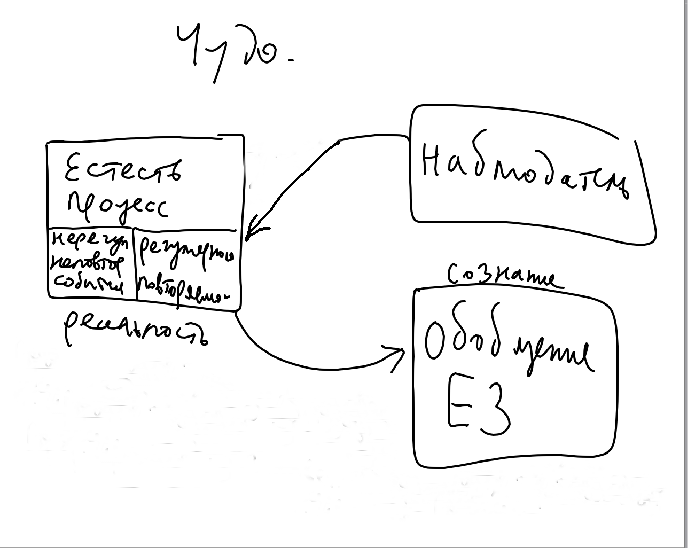 Чудо.
Естеств
процесс
нерегул
неповтор
события
регулярно
повторяемо
реальность
Наблюдатель
сознание
Обобщение
ЕЗ